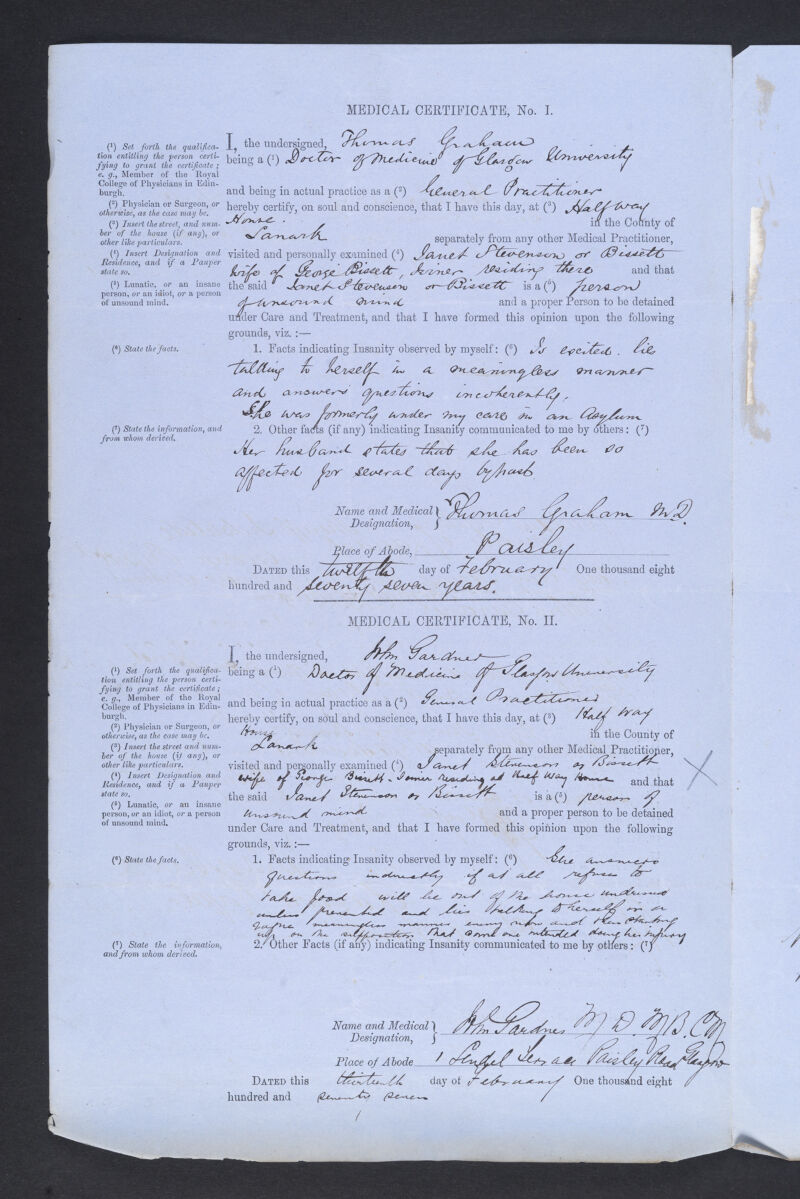 MEDICAL CERTIFICATE, No. I.
(1) Set forth the qualifica-
tion entitling the person certi-
fying to grant the certificate;
e. g., Member of the Royal
College of Physicians in Edin-
burgh.
(2) Physician or Surgeon, or
otherwise, as the case may be.
(3) Insert the street, and num-
ber of the house (if any), or
other like particulars.
(4) Insert Designation and
Residence, and if a Pauper
state so.
(5) Lunatic, or an insane
person, or an idiot, or a person
of unsound mind.
(6) State the facts.
(7) State the information, and
from whom derived.
I, the undersigned, Thomas Graham
being a (1) Doctor of Medicine of Glasgow University
and being in actual practice as a (2) General Practitioner
hereby certify, on soul and conscience, that I have this day, at (3) Half Way
House. in the County of
Lanark separately from any other Medical Practitioner,
visited and personally examined (4) Janet Stevenson or Bissett
wife of George Bissett, Joiner residing there and that
the said Janet Stevenson or Bissett is a (5) person
of unsound mind and a proper Person to be detained
under Care and Treatment, and that I have formed this opinion upon the following
grounds, viz. :—
1. Facts indicating Insanity observed by myself: (6) Is excited. lies
talking to herself in a meaningless manner
and answers questions incoherently.
She was formerly under my care in an Asylum
2. Other facts (if any) indicating Insanity communicated to me by others: (7)
Her husband states that she has been so
affected for several days bypast
Name and Medical Designation, Thomas Graham M.D.
Place of Abode, Paisley
DATED this twelfth day of February One thousand eight
hundred and seventy seven years.
MEDICAL CERTIFICATE, No. II.
(1) Set forth the qualifica-
tion entitling the person certi-
fying to grant the certificate;
e. g., Member of the Royal
College of Physicians in Edin-
burgh.
(2) Physician or Surgeon, or
otherwise, as the case may be.
(3) Insert the street and num-
ber of the house (if any), or
other like particulars.
(4) Insert Designation and
Residence, and if a Pauper
state so.
(5) Lunatic, or an insane
person, or an idiot, or a person
of unsound mind.
(6) State the facts.
(7) State the information,
and from whom derived.
I, the undersigned, Gardner
being a (1) Doctor of Medicine of Glasgow University
and being in actual practice as a (2) General Practitioner
hereby certify, on soul and conscience, that I have this day, at (3) Half Way
House in the County of
Lanark separately from any other Medical Practitioner,
visited and personally examined (4) Janet Stevenson or Bissett
wife of George Bissett - Joiner residing at Half Way House and that
the said Janet Stevenson or Bissett is a (5) person of
unsound mind and a proper person to be detained
under Care and Treatment, and that I have formed this opinion upon the following
grounds, viz. :—
1. Facts indicating Insanity observed by myself: (6) She answers
questions indirectly if at all refuses to
take food will be out of the house undressed
unless prevented and lies talking to herself in a
vague meaningless manner every now and then starting
up on the supposition that some one intended doing her injury
2. Other Facts (if any) indicating Insanity communicated to me by others: (7)
Name and Medical Designation, Gardner M D. M B. C M
Place of Abode 1 Terrace Paisley Road Glasgow
DATED this thirteenth day of February One thousand eight
hundred and seventy seven